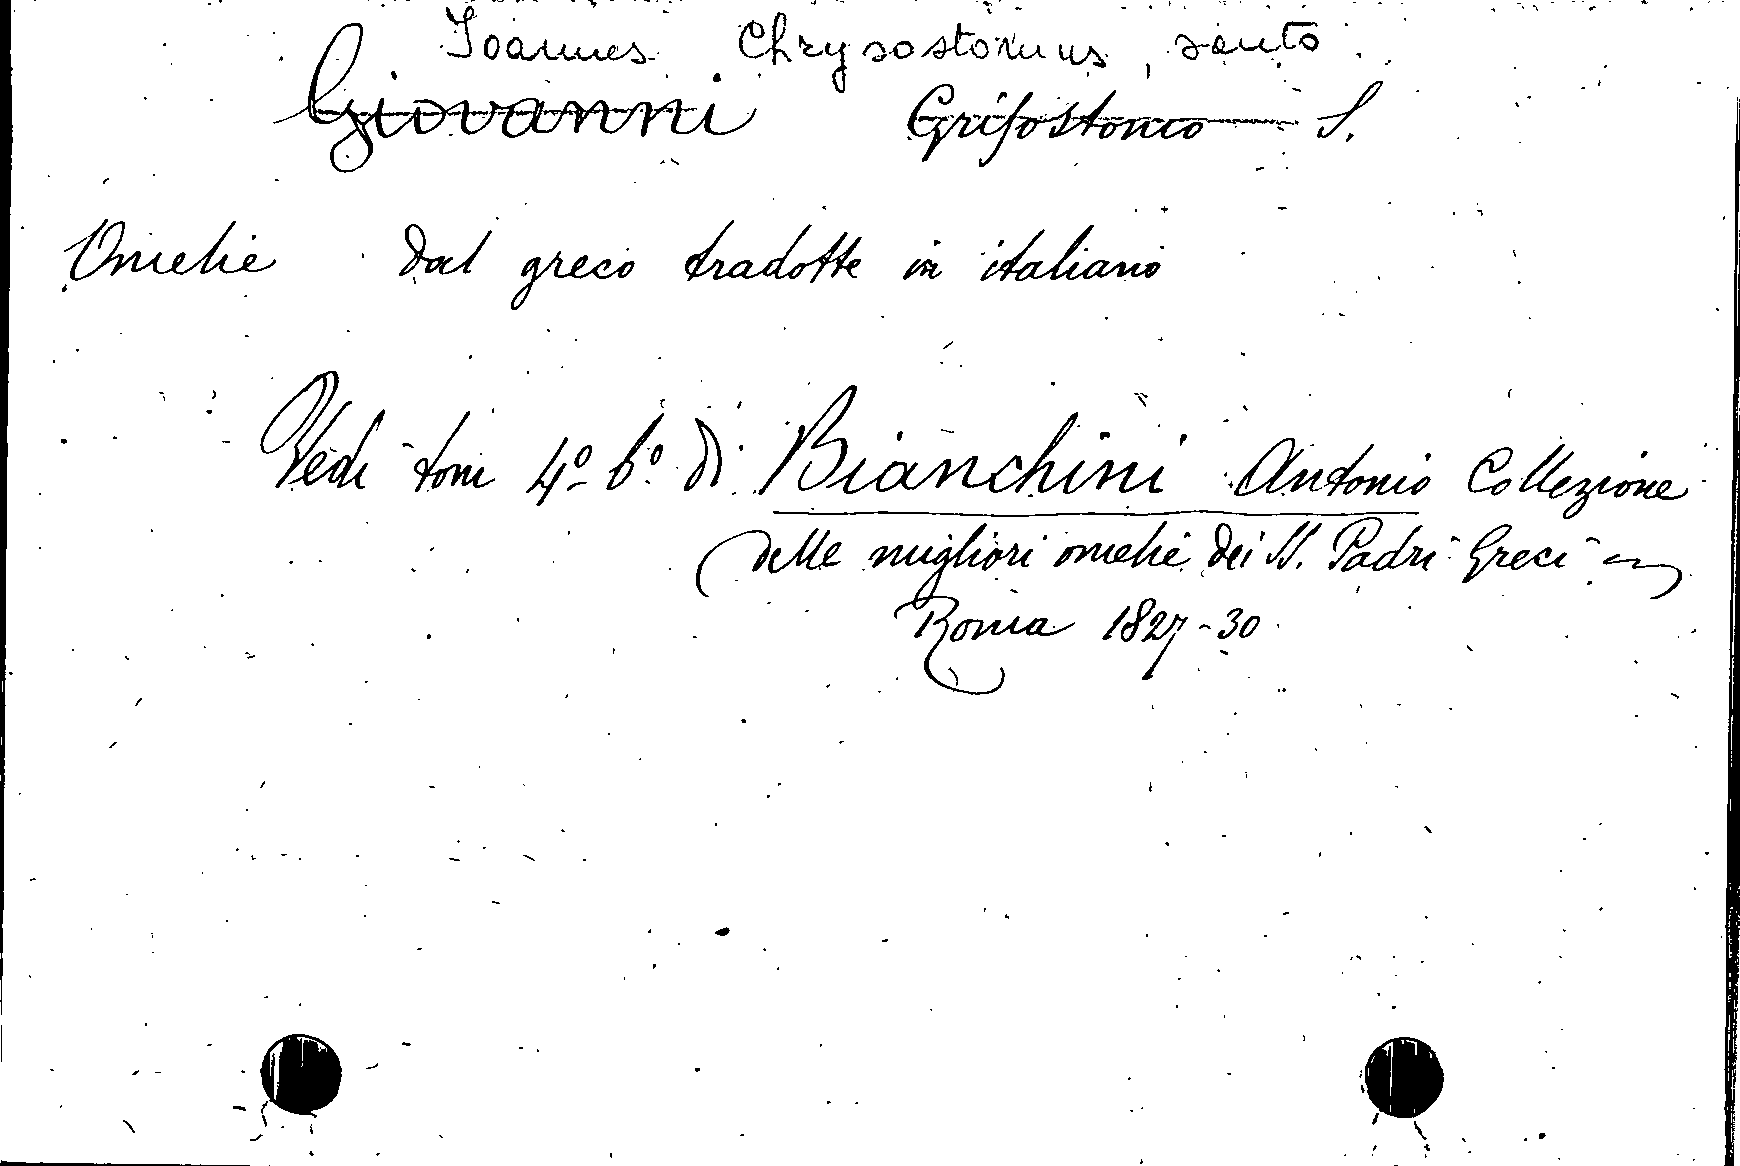 Ioannes Chrysostomus, santo
Giovanni Grisostomo S.
Omelie dal greco tradotte in italiano
Vedi tom 4º 6º di Bianchini Antonio Collezione
delle migliori omelie dei SS. Padri Greci
Roma 1827-30